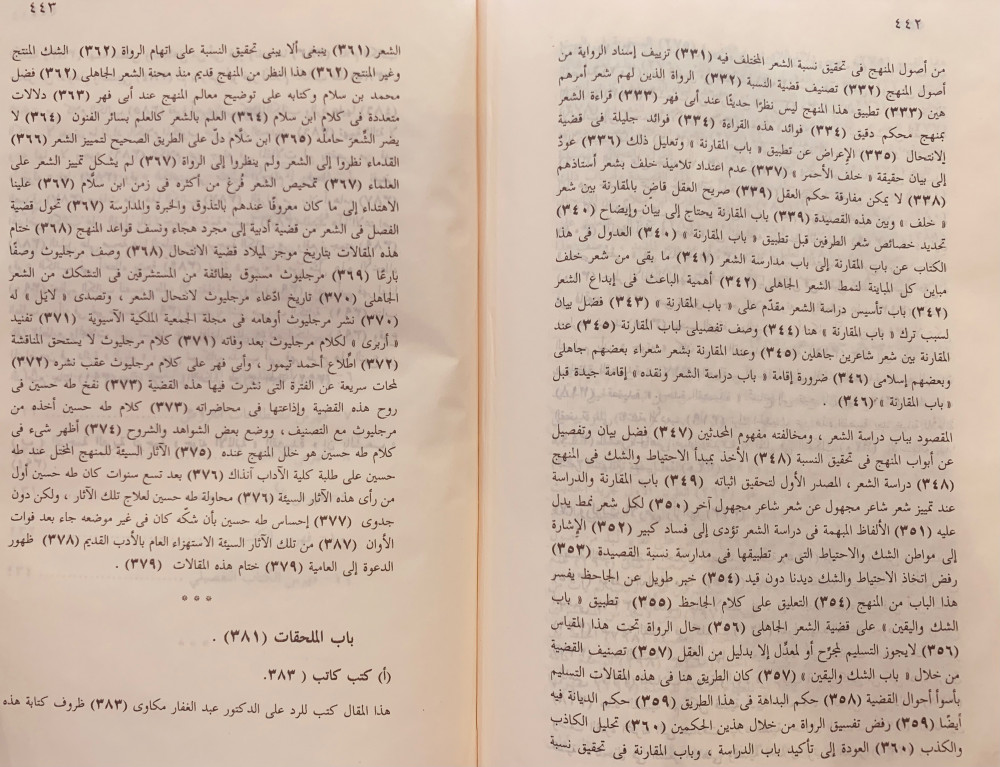 ٤٤٢
من أصول المنهج فى تحقيق نسبة الشعر المختلف فيه (٣٣١) تزييف إسناد الرواية من
أصول المنهج (٣٣٢) تصنيف قضية النسبة (٣٣٢) الرواة الذين لهم شعر أمرهم
هين (٣٣٣) تطبيق هذا المنهج ليس نظرًا حديثًا عند أبى فهر (٣٣٣) قراءة الشعر
بمنهج محكم دقيق (٣٣٤) فوائد هذه القراءة (٣٣٤) فوائد جليلة فى قضية
الإنتحال (٣٣٥) الإعراض عن تطبيق « باب المقارنة » وتعليل ذلك (٣٣٦) عودٌ
إلى بيان حقيقة « خلف الأحمر » (٣٣٧) عدم اعتداد تلاميذ خلف بشعر أستاذهم
(٣٣٨) لا يمكن مفارقة حكم العقل (٣٣٩) صريح العقل قاضٍ بالمقارنة بين شعر
« خلف » وبين هذه القصيدة (٣٣٩) باب المقارنة يحتاج إلى بيان وإيضاح (٣٤٠)
تحديد خصائص شعر الطرفين قبل تطبيق « باب المقارنة » (٣٤٠) العدول فى هذا
الكتاب عن باب المقارنة إلى باب مدارسة الشعر (٣٤١) ما بقى من شعر خلف
مباين كل المباينة لنمط الشعر الجاهلى (٣٤٢) أهمية الباعث فى إبداغ الشعر
(٣٤٢) باب تأسيس دراسة الشعر مقدّم على « باب المقارنة » (٣٤٣) فضل بيان
لسبب ترك « باب المقارنة » هنا (٣٤٤) وصف تفصيلى لباب المقارنة (٣٤٥) عند
المقارنة بين شعر شاعرين جاهلين (٣٤٥) وعند المقارنة بشعر شعراء بعضهم جاهلى
وبعضهم إسلامى (٣٤٦) ضرورة إقامة « باب دراسة الشعر ونقده » إقامة جيدة قبل
« باب المقارنة » (٣٤٦) .
المقصود بباب دراسة الشعر ، ومخالفته مفهوم المحدثين (٣٤٧) فضل بيان وتفصيل
عن أبواب المنهج فى تحقيق النسبة (٣٤٨) الأخذ بمبدأ الاحتياط والشك فى المنهج
(٣٤٨) دراسة الشعر، المصدر الأول لتحقيق اثباته (٣٤٩) باب المقارنة والدراسة
عند تمييز شعر شاعر مجهول عن شعر شاعر مجهول آخر (٣٥٠) لكل شعر نمط يدل
عليه (٣٥١) الألفاظ المبهمة فى دراسة الشعر تؤدى إلى فساد كبير (٣٥٢) الإشارة
إلى مواطن الشك والاحتياط التى مر تطبيقها فى مدارسة نسبة القصيدة (٣٥٣)
رفض اتخاذ الاحتياط والشك ديدنا دون قيد (٣٥٤) خبر طويل عن الجاحظ يفسر
هذا الباب من المنهج (٣٥٤) التعليق على كلام الجاحظ (٣٥٥) تطبيق « باب
الشك واليقين » على قضية الشعر الجاهلى (٣٥٦) حال الرواة تحت هذا المقياس
(٣٥٦) لايجوز التسليم لمجرّح أو لمعدِّل إلا بدليل من العقل (٣٥٧) تصنيف القضية
من خلال « باب الشك واليقين » (٣٥٧) كان الطريق هنا فى هذه المقالات التسليم
بأسوأ أحوال القضية (٣٥٨) حكم البداهة فى هذا الطريق (٣٥٩) حكم الديانة فيه
أيضًا (٣٥٩) رفض تفسيق الرواة من خلال هذين الحكمين (٣٦٠) تحليل الكاذب
والكذب (٣٦٠) العودة إلى تأكيد باب الدراسة ، وباب المقارنة فى تحقيق نسبة
٤٤٣
الشعر (٣٦١) ينبغى ألا يبنى تحقيق النسبة على اتهام الرواة (٣٦٢) الشك المنتج
وغير المنتج (٣٦٢) هذا النظر من المنهج قديم منذ محنة الشعر الجاهلى (٣٦٢) فضل
محمد بن سلام وكتابه على توضيح معالم المنهج عند أبى فهر (٣٦٣) دلالات
متعددة فى كلام ابن سلام (٣٦٤) العلم بالشعر كالعلم بسائر الفنون (٣٦٤) لا
يضر الشِّعرَ حاملُه (٣٦٥) ابن سلّام دلّ على الطريق الصحيح لتمييز الشعر (٣٦٦)
القدماء نظروا إلى الشعر ولم ينظروا إلى الرواة (٣٦٧) لم يشكل تمييز الشعر على
العلماء (٣٦٧) تمحيص الشعر فُرغ من أكثره فى زمن ابن سلّام (٣٦٧) علينا
الاهتداء إلى ما كان معروفًا عندهم بالتذوق والخبرة والمدارسة (٣٦٧) تحول قضية
الفصل فى الشعر من قضية أدبية إلى مجرد هجاء ونسف قواعد المنهج (٣٦٨) ختام
هذه المقالات بتاريخ موجز لميلاد قضية الانتحال (٣٦٨) وصف مرجليوث وصفًا
بارعًا (٣٦٩) مرجليوث مسبوق بطائفة من المستشرقين فى التشكك من الشعر
الجاهلى (٣٧٠) تاريخ ادّعاء مرجليوث لانتحال الشعر ، وتصدى « لايَل » له
(٣٧٠) نشر مرجليوث أوهامه فى مجلة الجمعية الملكية الآسيوية (٣٧١) تفنيد
« أربرى » لكلام مرجليوث بعد وفاته (٣٧١) كلام مرجليوث لا يستحق المناقشة
(٣٧٢) اطّلاع أحمد تيمور ، وأبى فهر على كلام مرجليوث عقب نشره (٣٧٢)
لمحات سريعة عن الفترة التى نشرت فيها هذه القضية (٣٧٣) نفخ طه حسين فى
روح هذه القضية وإذاعتها فى محاضراته (٣٧٣) كلام طه حسين أخذه من
مرجليوث مع التصنيف ، ووضع بعض الشواهد والشروح (٣٧٤) أظهر شىء فى
كلام طه حسين هو خلل المنهج عنده (٣٧٥) الآثار السيئة للمنهج المختل عند طه
حسين على طلبة كلية الآداب آنذاك (٣٧٦) بعد تسع سنوات كان طه حسين أول
من رأى هذه الآثار السيئة (٣٧٦) محاولة طه حسين لعلاج تلك الآثار ، ولكن دون
جدوى (٣٧٧) إحساس طه حسين بأن شكّه كان فى غير موضعه جاء بعد فوات
الأوان (٣٨٧) من تلك الآثار السيئة الاستهزاء العام بالأدب القديم (٣٧٨) ظهور
الدعوة إلى العامية (٣٧٩) ختام هذه المقالات (٣٧٩) .
* * *
باب الملحقات (٣٨١) .
(أ) كتب كاتب ( ٣٨٣.
هذا المقال كتب للرد على الدكتور عبد الغفار مكاوى (٣٨٣) ظروف كتابة هذه